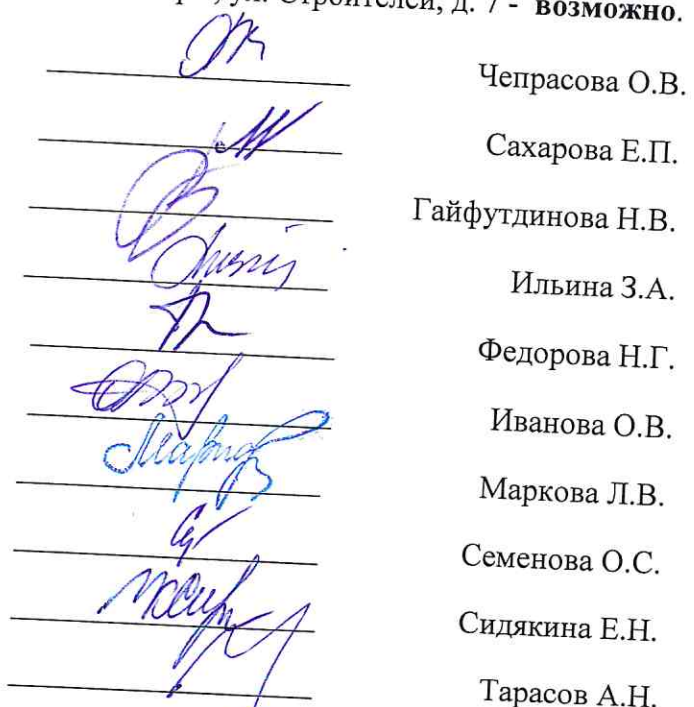 ул. Строителей, д. 7 - возможно.
Чепрасова О.В.
Сахарова Е.П.
Гайфутдинова Н.В.
Ильина З.А.
Федорова Н.Г.
Иванова О.В.
Маркова Л.В.
Семенова О.С.
Сидякина Е.Н.
Тарасов А.Н.